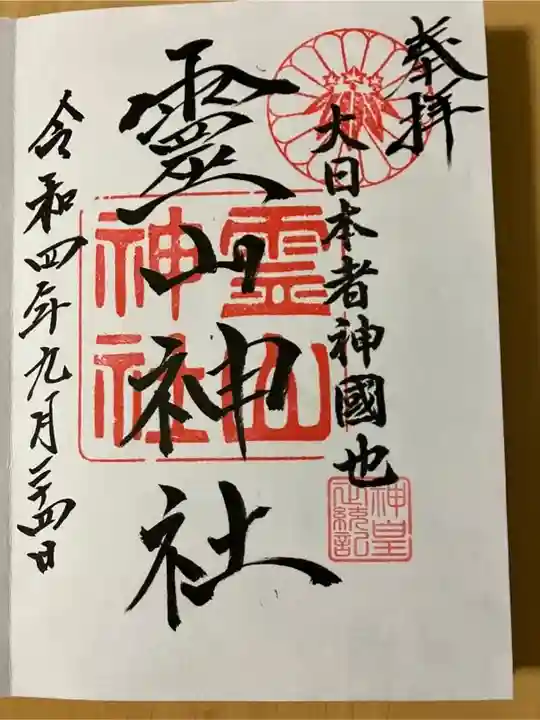 奉拝
大日本者神國也
神皇正統記
靈山神社
霊山神社
令和四年九月二十四日